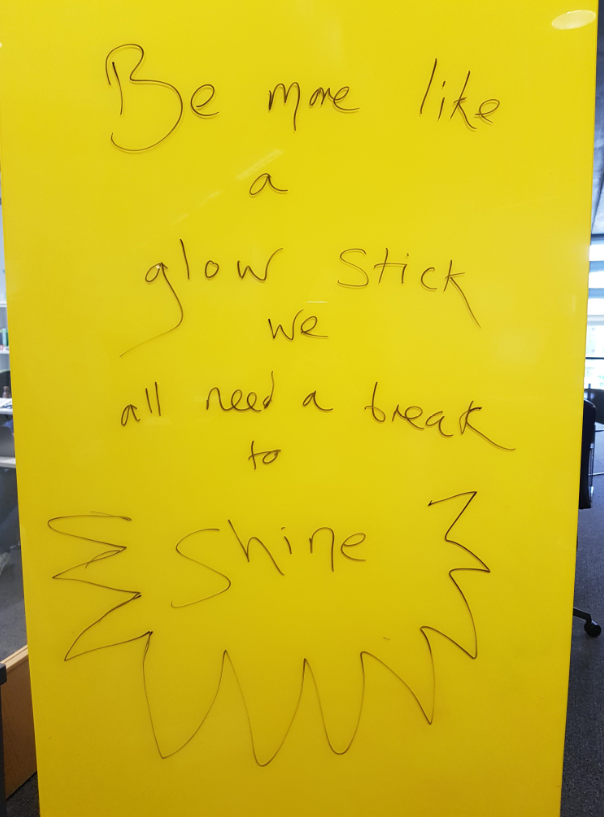 Be more like
a
glow stick
we
all need a break
to
Shine